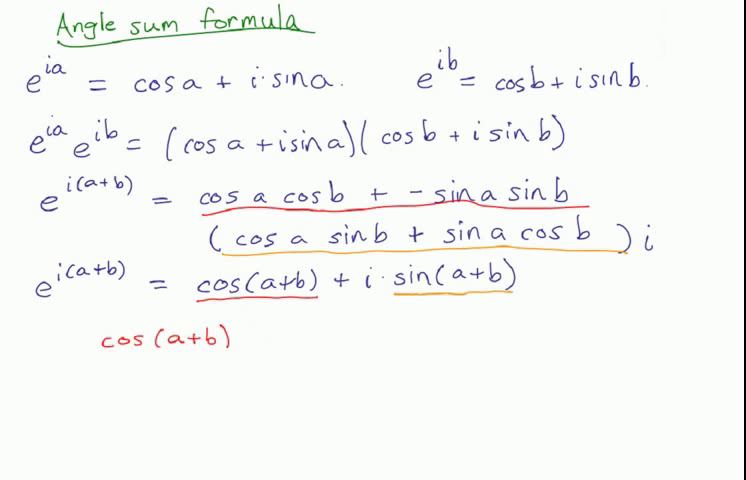 Angle sum formula
e^{ia} = cos a + i · sin a. e^{ib} = cos b + i sin b.
e^{ia} e^{ib} = (cos a + i sin a)(cos b + i sin b)
e^{i(a+b)} = cos a cos b + - sin a sin b
(cos a sin b + sin a cos b) i
e^{i(a+b)} = cos(a+b) + i · sin(a+b)
cos (a+b)